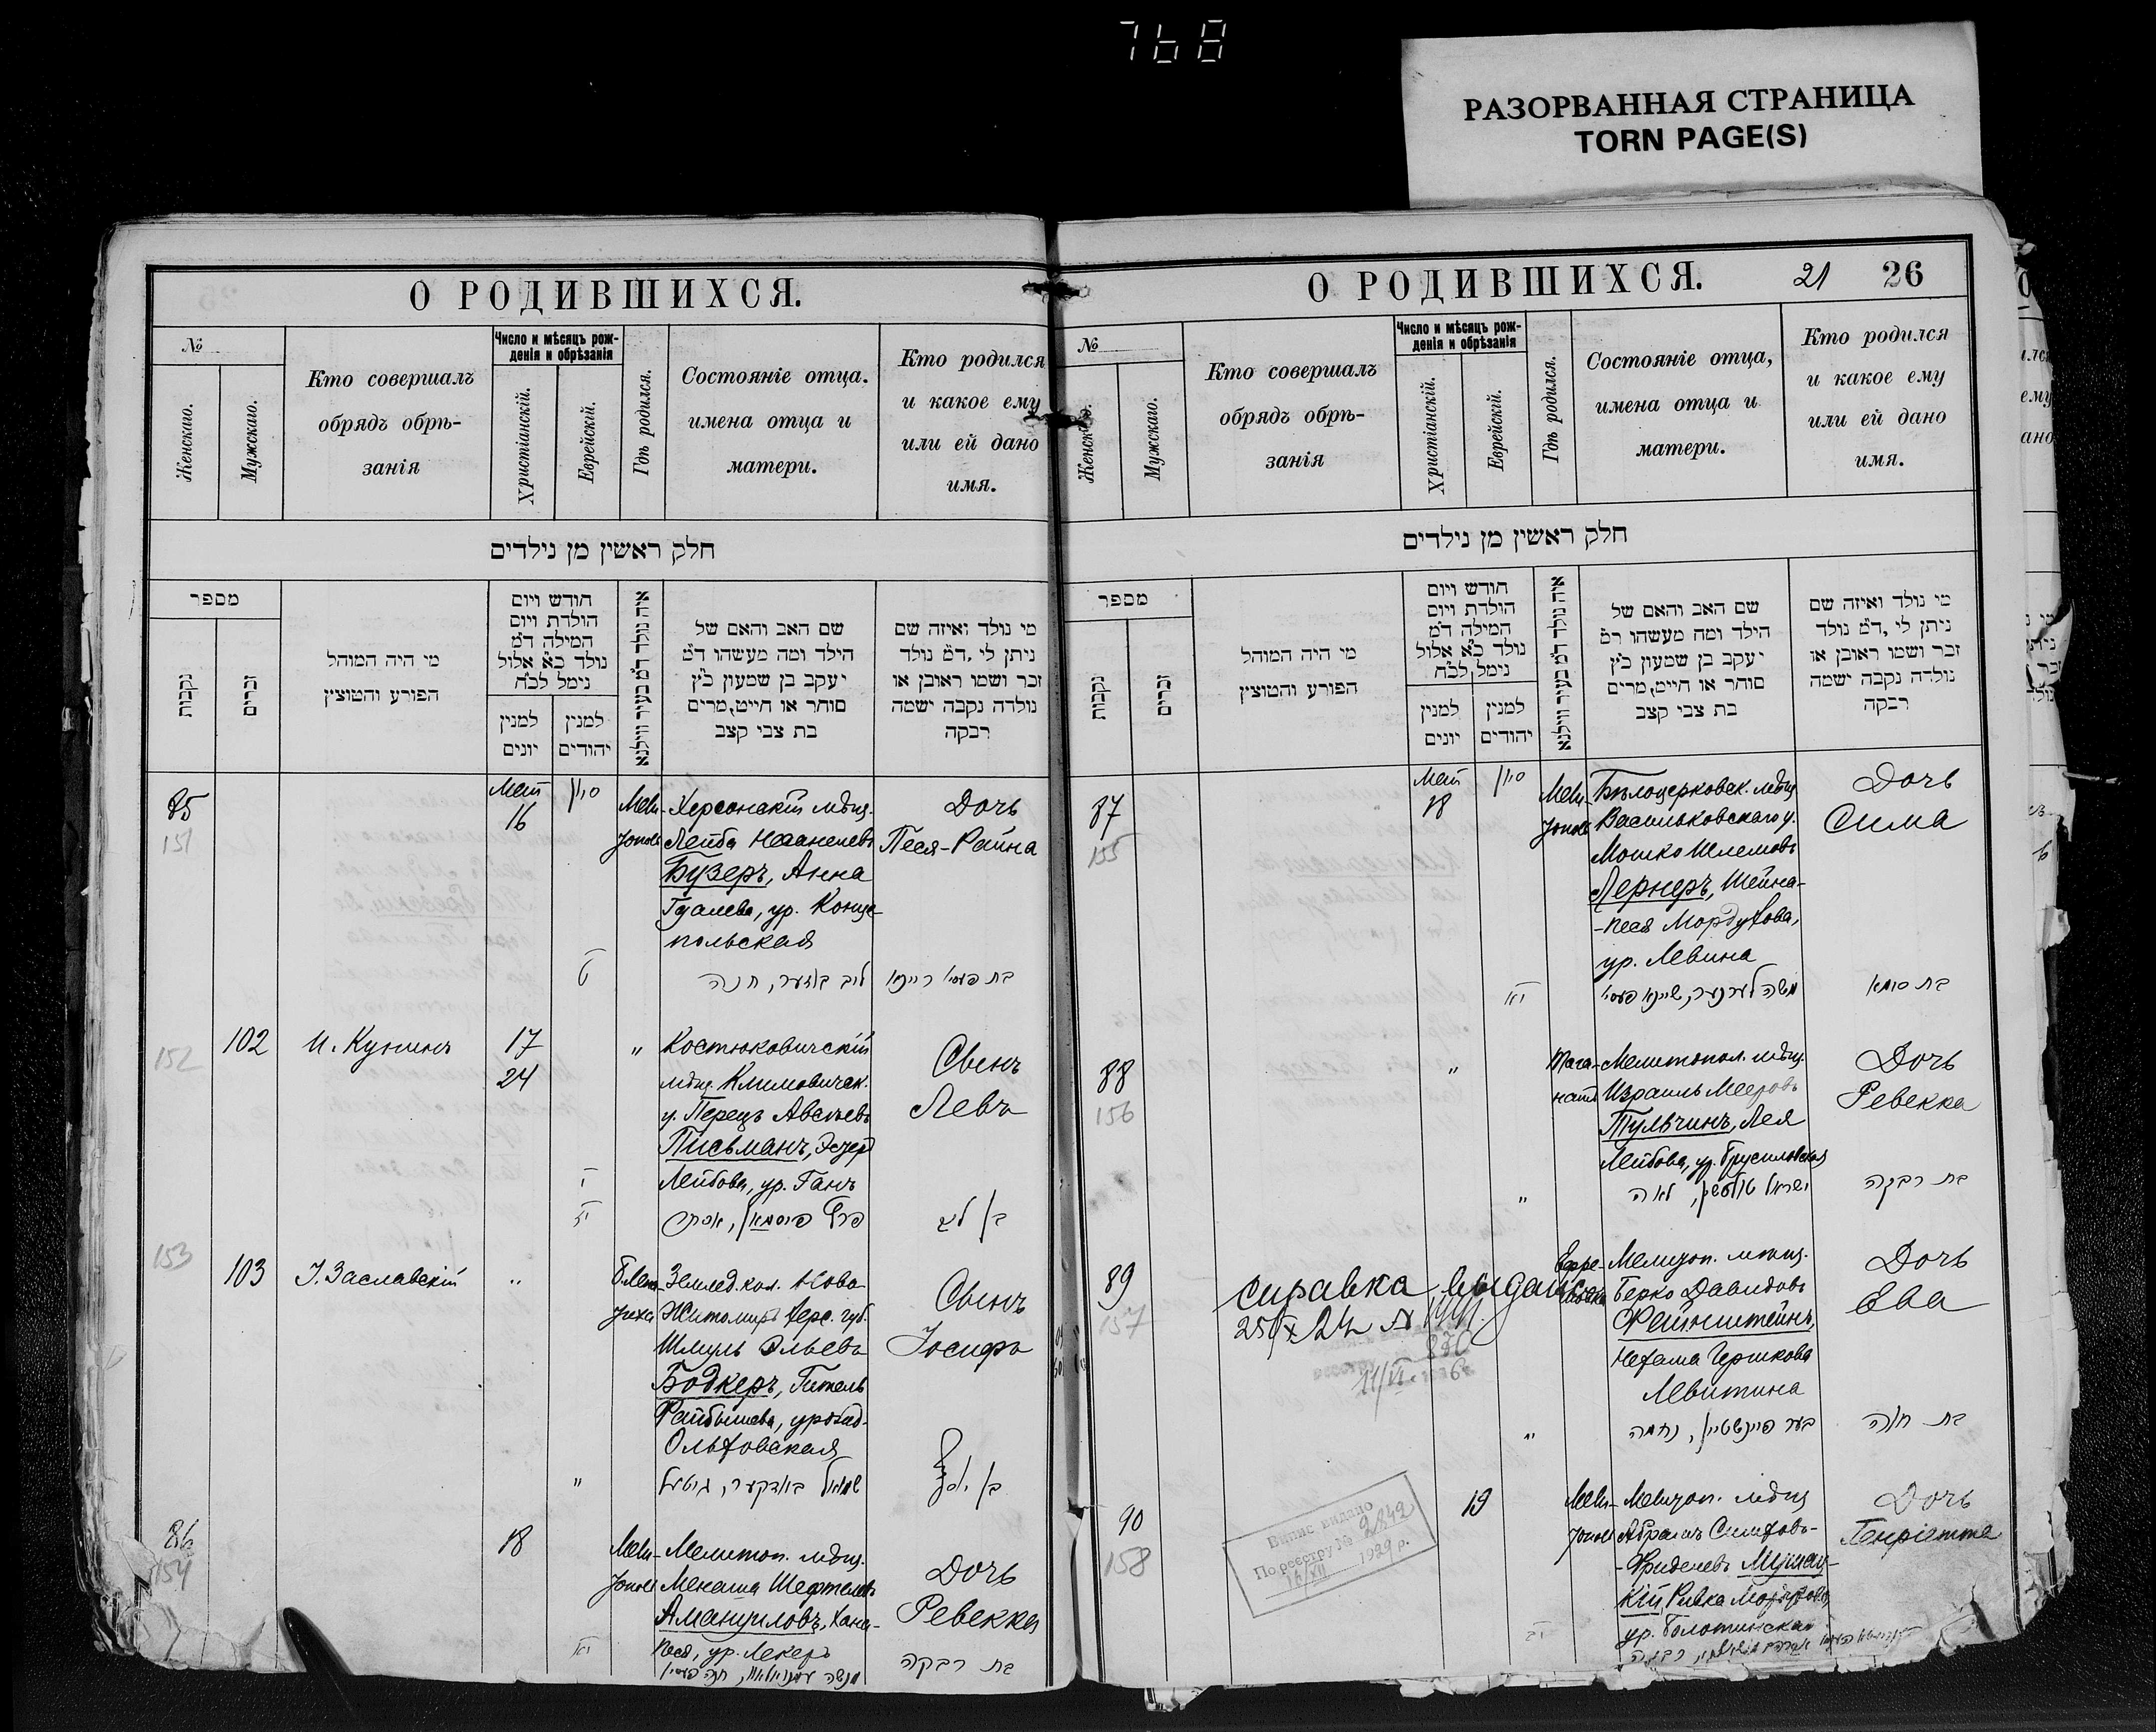 768
РАЗОРВАННАЯ СТРАНИЦА
TORN PAGE(S)
О РОДИВШИХСЯ.
№
Женскаго.
Мужскаго.
Кто совершалъ
обрядъ обрѣ-
занія
Число и мѣсяцъ рож-
денія и обрѣзанія
Христіанскій.
Еврейскій.
Гдѣ родился.
Состояніе отца.
имена отца и
матери.
Кто родился
и какое ему
или ей дано
имя.
חלק ראשין מן נילדים
מספר
נקבות
זכרים
מי היה המוהל
הפורע והמוצץ
חודש ויום
הולדת ויום
המילה ד״מ
נולד כ״א אלול
נימל לכ״ח
למנין
יונים
למנין
יהודים
איה נולד ד״מ בעיר ווילנא
שם האב והאם של
הילד ומה מעשהו ד״מ
יעקב בן שמעון כ״ץ
סוחר או חייט, מרים
בת צבי קצב
מי נולד ואיזה שם
ניתן לו, ד״מ נולד
זכר ושמו ראובן או
נולדה נקבה ישמה
רבקה
85
151
Май
16
סיון
ט
Мели-
тополь
Херсонскій мѣщ.
Лейба
Бузеръ, Анна
Гдалева, ур. Конце-
польская
ליב בוזער, חנה
Дочь
Песя-Райна
בת פעסי ריינא
152
102
И. Кунинъ
17
24
י
יז
"
Костюковичскій
мѣщ. Климовичск.
у. Перецъ
Письманъ,
Лейбова, ур. Ганъ
פרץ פיסמאן, אסתר
Сынъ
Левъ
בן ליב
153
103
І. Заславскій
"
"
Землед. кол. Ново-
Житомиръ Херс. губ.
Шмуль Эльевъ
Бодкеръ, Гитель
Ольховская
שמואל באדקער, גיטעל
Сынъ
Іосифъ
בן יוסף
86
154
18
יא
Мели-
тополь
Мелитоп. мѣщ.
Менаша Шефтелевъ
Амануиловъ, Хана-
Песя, ур. Лекеръ
Дочь
Ревекка
בת רבקה
О РОДИВШИХСЯ.
21
26
№
Женскаго.
Мужскаго.
Кто совершалъ
обрядъ обрѣ-
занія
Число и мѣсяцъ рож-
денія и обрѣзанія
Христіанскій.
Еврейскій.
Гдѣ родился.
Состояніе отца,
имена отца и
матери.
Кто родился
и какое ему
или ей дано
имя.
חלק ראשין מן נילדים
מספר
נקבות
זכרים
מי היה המוהל
הפורע והמוצץ
חודש ויום
הולדת ויום
המילה ד״מ
נולד כ״א אלול
נימל לכ״ח
למנין
יונים
למנין
יהודים
איה נולד ד״מ בעיר ווילנא
שם האב והאם של
הילד ומה מעשהו ד״מ
יעקב בן שמעון כ״ץ
סוחר או חייט, מרים
בת צבי קצב
מי נולד ואיזה שם
ניתן לו, ד״מ נולד
זכר ושמו ראובן או
נולדה נקבה ישמה
רבקה
87
155
Май
18
סיון
יא
Мели-
тополь
Бѣлоцерковск. мѣщ.
Васильковскаго у.
Мошко Шлемовъ
Лернеръ, Шейна-
-Песя Мордухова,
ур. Левина
משה לערנער, שיינא פעסי
Дочь
Сима
בת סימא
88
156
"
"
Мелитопол. мѣщ.
Израиль Мееровъ
Тульчинъ, Лея
Лейбова, ур. Брусиловская
ישראל טולטשין, לאה
Дочь
Ревекка
בת רבקה
89
157
справка выдана
25/X 24 №
830
11/VI
"
Мелитоп. мѣщ.
Берко Давидовъ
Файнштейнъ,
Нехама Гершкова
Левитина
בער פיינשטיין, נחמה
Дочь
Ева
בת חוה
90
158
Випис видано
По реєстру № 2842
16/XII 1929 р.
19
יב
Мели-
тополь
Мелитоп. мѣщ.
Абрамъ Симхов-
кій, Ривка
ур. Болотинская
Дочь
Генріетта